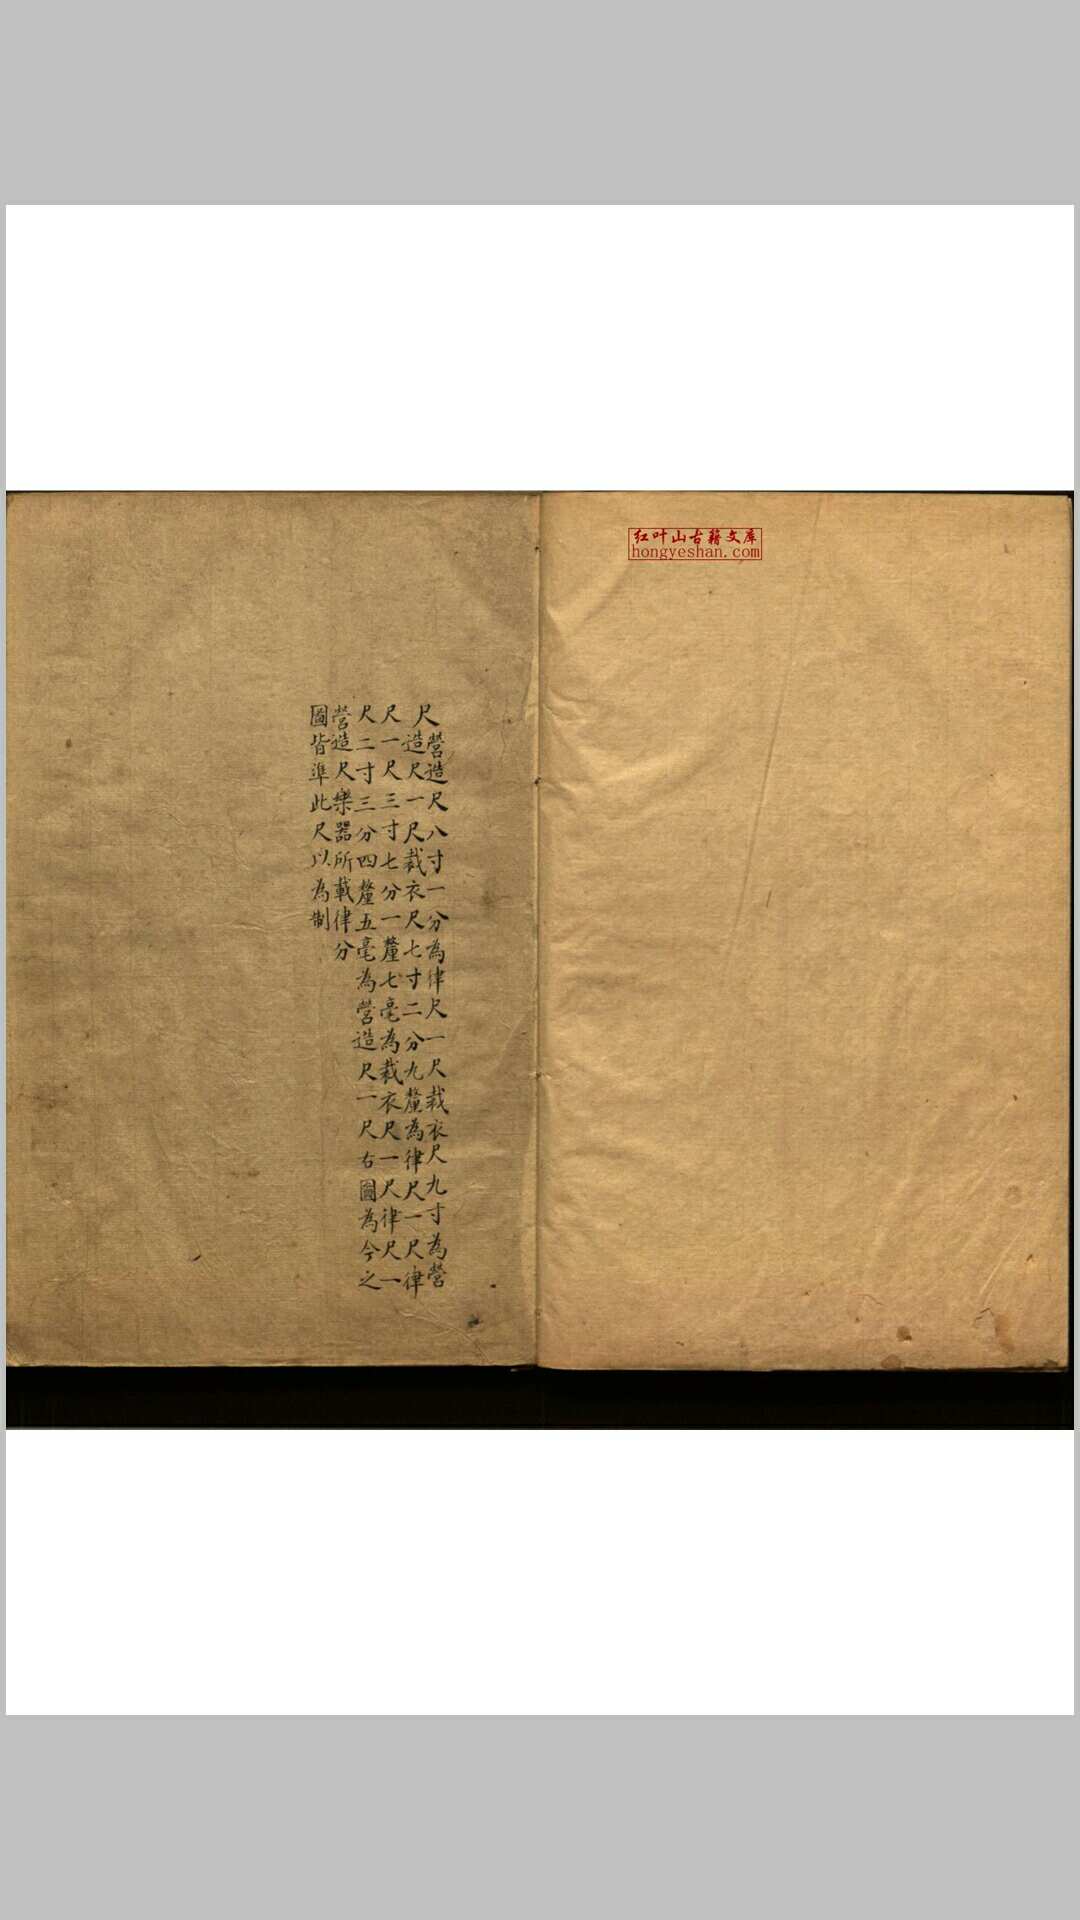 红叶山古籍文库
hongyeshan.com
尺營造尺八寸一分為律尺一尺裁衣尺九寸為營
造尺一尺裁衣尺七寸二分九釐為律尺一尺律
尺一尺三寸七分一釐七毫為裁衣尺一尺律尺一
尺二寸三分四釐五毫為營造尺一尺右圖為今之
營造尺樂器所載律分
圖皆準此尺以為制